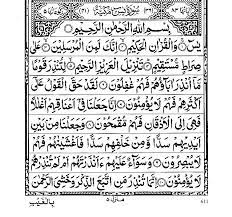 سُوْرَةُ يٰسٓ مَكِّيَّةٌ
بِسْمِ اللّٰهِ الرَّحْمٰنِ الرَّحِيْمِ
يٰسٓ ۝ وَالْقُرْاٰنِ الْحَكِيْمِ ۝ اِنَّكَ لَمِنَ الْمُرْسَلِيْنَ ۝ عَلٰى
صِرَاطٍ مُّسْتَقِيْمٍ ۝ تَنْزِيْلَ الْعَزِيْزِ الرَّحِيْمِ ۝ لِتُنْذِرَ قَوْمًا
مَّاۤ اُنْذِرَ اٰبَآؤُهُمْ فَهُمْ غٰفِلُوْنَ ۝ لَقَدْ حَقَّ الْقَوْلُ عَلٰۤى
اَكْثَرِهِمْ فَهُمْ لَا يُؤْمِنُوْنَ ۝ اِنَّا جَعَلْنَا فِيْۤ اَعْنَاقِهِمْ اَغْلٰلًا
فَهِيَ اِلَى الْاَذْقَانِ فَهُمْ مُّقْمَحُوْنَ ۝ وَجَعَلْنَا مِنْۢ بَيْنِ
اَيْدِيْهِمْ سَدًّا وَّمِنْ خَلْفِهِمْ سَدًّا فَاَغْشَيْنٰهُمْ فَهُمْ
لَا يُبْصِرُوْنَ ۝ وَسَوَآءٌ عَلَيْهِمْ ءَاَنْذَرْتَهُمْ اَمْ لَمْ تُنْذِرْهُمْ
لَا يُؤْمِنُوْنَ ۝ اِنَّمَا تُنْذِرُ مَنِ اتَّبَعَ الذِّكْرَ وَخَشِيَ الرَّحْمٰنَ
منزل ٥
بِالْغَيْبِ